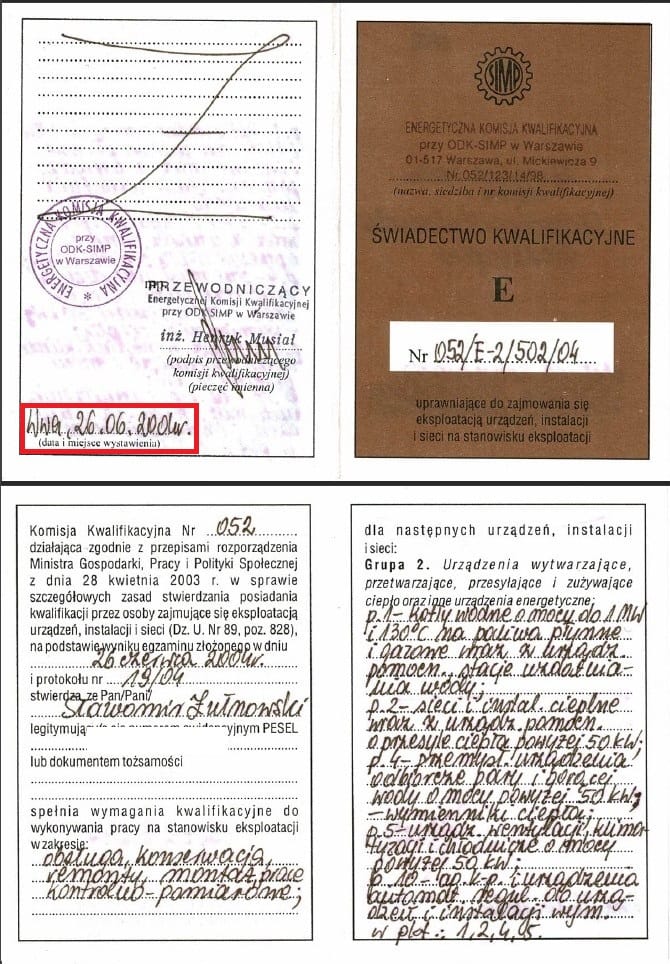 ENERGETYCZNA KOMISJA KWALIFIKACYJNA
przy
ODK-SIMP
w Warszawie
PRZEWODNICZĄCY
Energetycznej Komisji Kwalifikacyjnej
przy ODK SIMP w Warszawie
inż. Henryk Musiał
(podpis przewodniczącego
komisji kwalifikacyjnej)
(pieczęć imienna)
Wwa, 26.06.2004r.
(data i miejsce wystawienia)
SIMP
ENERGETYCZNA KOMISJA KWALIFIKACYJNA
przy ODK-SIMP w Warszawie
01-517 Warszawa, ul. Mickiewicza 9
Nr 052/123/14/98
(nazwa, siedziba i nr komisji kwalifikacyjnej)
ŚWIADECTWO KWALIFIKACYJNE
E
Nr 052/E-2/502/04
uprawniające do zajmowania się
eksploatacją urządzeń, instalacji
i sieci na stanowisku eksploatacji
Komisja Kwalifikacyjna Nr 052
działająca zgodnie z przepisami rozporządzenia
Ministra Gospodarki, Pracy i Polityki Społecznej
z dnia 28 kwietnia 2003 r. w sprawie
szczegółowych zasad stwierdzania posiadania
kwalifikacji przez osoby zajmujące się eksploatacją
urządzeń, instalacji i sieci (Dz. U. Nr 89, poz. 828),
na podstawie wyniku egzaminu złożonego w dniu
26 czerwca 2004r.
i protokołu nr 19/04
stwierdza, że Pan/Pani/
Sławomir Żułnowski
legitymują PESEL
lub dokumentem tożsamości
spełnia wymagania kwalifikacyjne do
wykonywania pracy na stanowisku eksploatacji
w zakresie:
obsługa, konserwacja,
remonty, montaż, prace
kontrolno-pomiarowe;
dla następnych urządzeń, instalacji
i sieci:
Grupa 2. Urządzenia wytwarzające,
przetwarzające, przesyłające i zużywające
ciepło oraz inne urządzenia energetyczne:
p.1- kotły wodne o mocy do 1 MW
i 130°C na paliwa płynne
i gazowe wraz z urządz.
pomocn. stacje uzdatnia-
nia wody;
p.2- sieci i instal. cieplne
wraz z urządz. pomocn.
o przesyle ciepła powyżej 50 kW;
p.4- przemysł. urządzenia
odbiorcze pary i gorącej
wody o mocy powyżej 50 kW;
- wymienniki ciepła;
p.5- urządz. wentylacji, klima-
tyzacji i chłodnicze o mocy
powyżej 50 kW;
p.10- ap. k-p. i urządzenia
automat. regul. do urzą-
dzeń i instalacji wym.
w pkt.: 1,2,4,5.